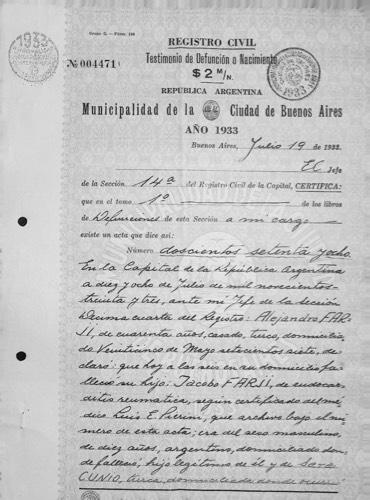 Grupo G. - Fórm. 198
REGISTRO CIVIL
1933
Testimonio de Defunción o Nacimiento
Nº 004471
$ 2 M/N.
1933
REPUBLICA ARGENTINA
Municipalidad de la Ciudad de Buenos Aires
AÑO 1933
Buenos Aires, Julio 19 de 1933.
El Jefe
de la Sección 14ª del Registro Civil de la Capital, CERTIFICA:
que en el tomo 1º de los libros
de Defunciones de esta Sección a mi cargo
existe un acta que dice así:
Número doscientos setenta y ocho.
En la Capital de la República Argentina
a diez y ocho de Julio de mil novecientos
treinta y tres, ante mí Jefe de la Sección
Décima cuarta del Registro: Alejandro FAR-
JI, de cuarenta años, casado, turco, domicilia-
do Veinticinco de Mayo setecientos siete, de-
claró: que hoy a las seis en su domicilio fa-
lleció su hijo: Jacobo FARJI, de endocar-
ditis reumática, según certificado del mé-
dico Luis E. Pierini, que archivo bajo el nú-
mero de esta acta; era del sexo masculino,
de diez años, argentino, domiciliado don-
de falleció, hijo legítimo de él y de Sara
CUNIO, turca, domiciliada donde ocurrió